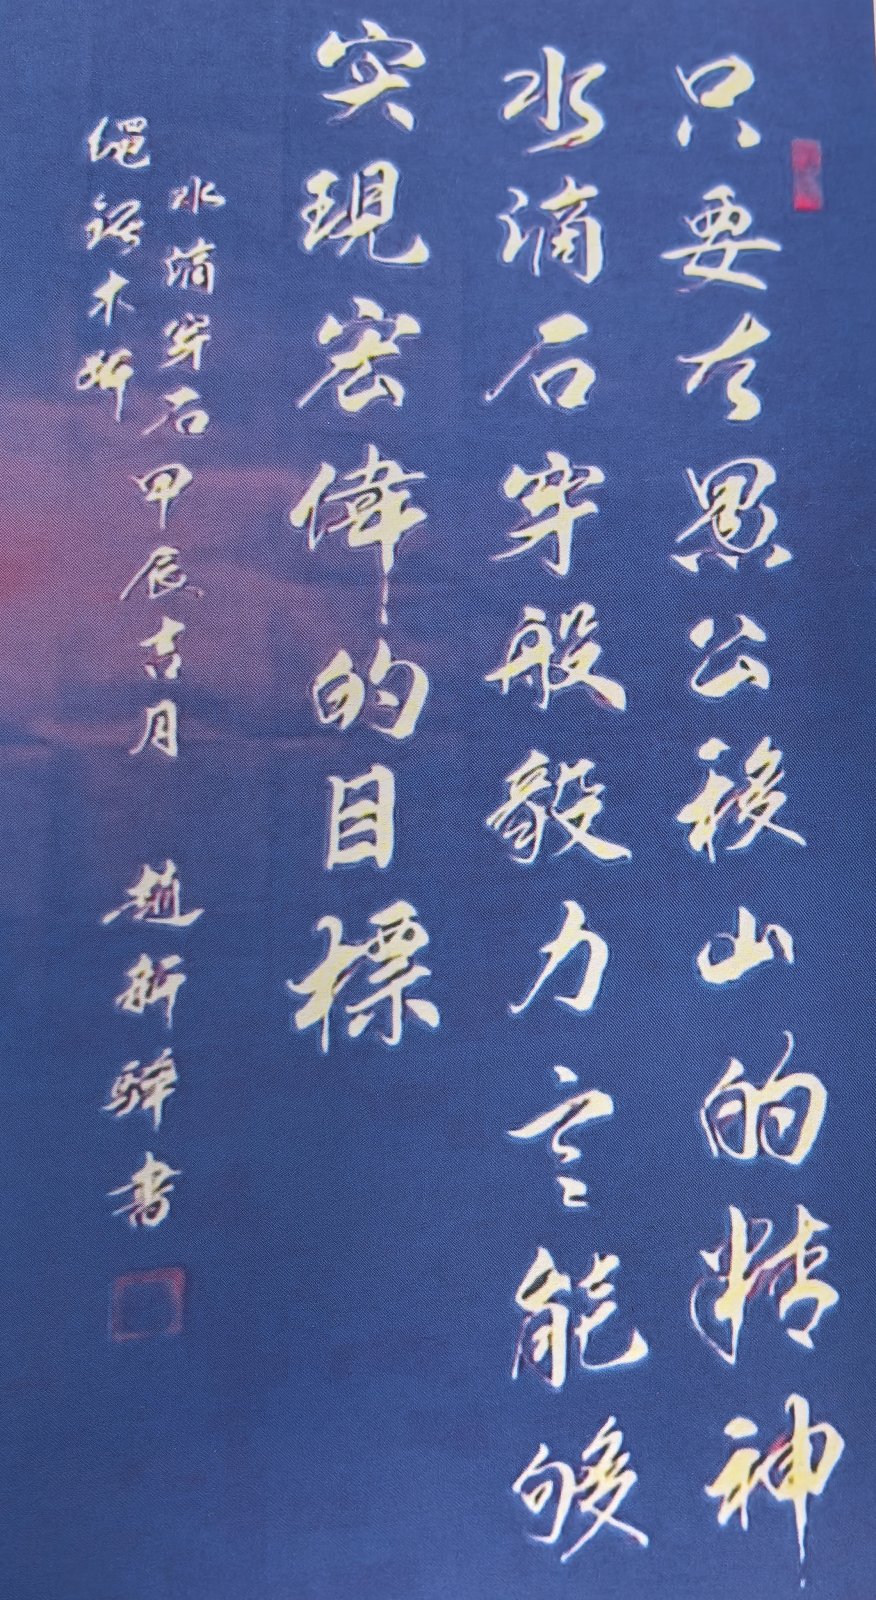 只要有愚公移山的精神
水滴石穿般毅力能够
实現宏偉的目標
水滴穿石
绳锯木断
甲辰吉月 趙新書